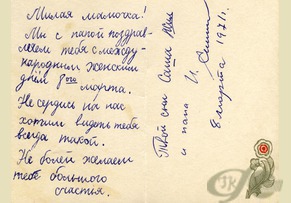 Милая мамочка!
Мы с папой поздрав-
ляем тебя с между-
народным женским
днём 8ого
марта.
Не сердись на нас
хотим видеть тебя
всегда такой.
Не болей желаем
тебе большого
счастья.
Твой сын Саша
и папа
8 марта 1971г.